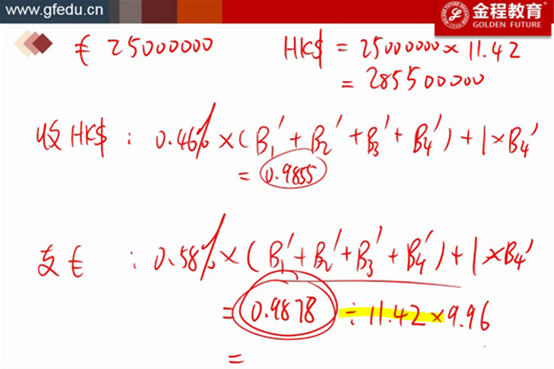 www.gfedu.cn
金程教育
GOLDEN FUTURE
€ 25000000 HK$ = 25000000 × 11.42
= 285500000
收HK$ : 0.46% × (B₁' + B₂' + B₃' + B₄') + 1 × B₄'
= 0.9855
支€ : 0.58% × (B₁' + B₂' + B₃' + B₄') + 1 × B₄'
= 0.9878 ÷ 11.42 × 9.96
=